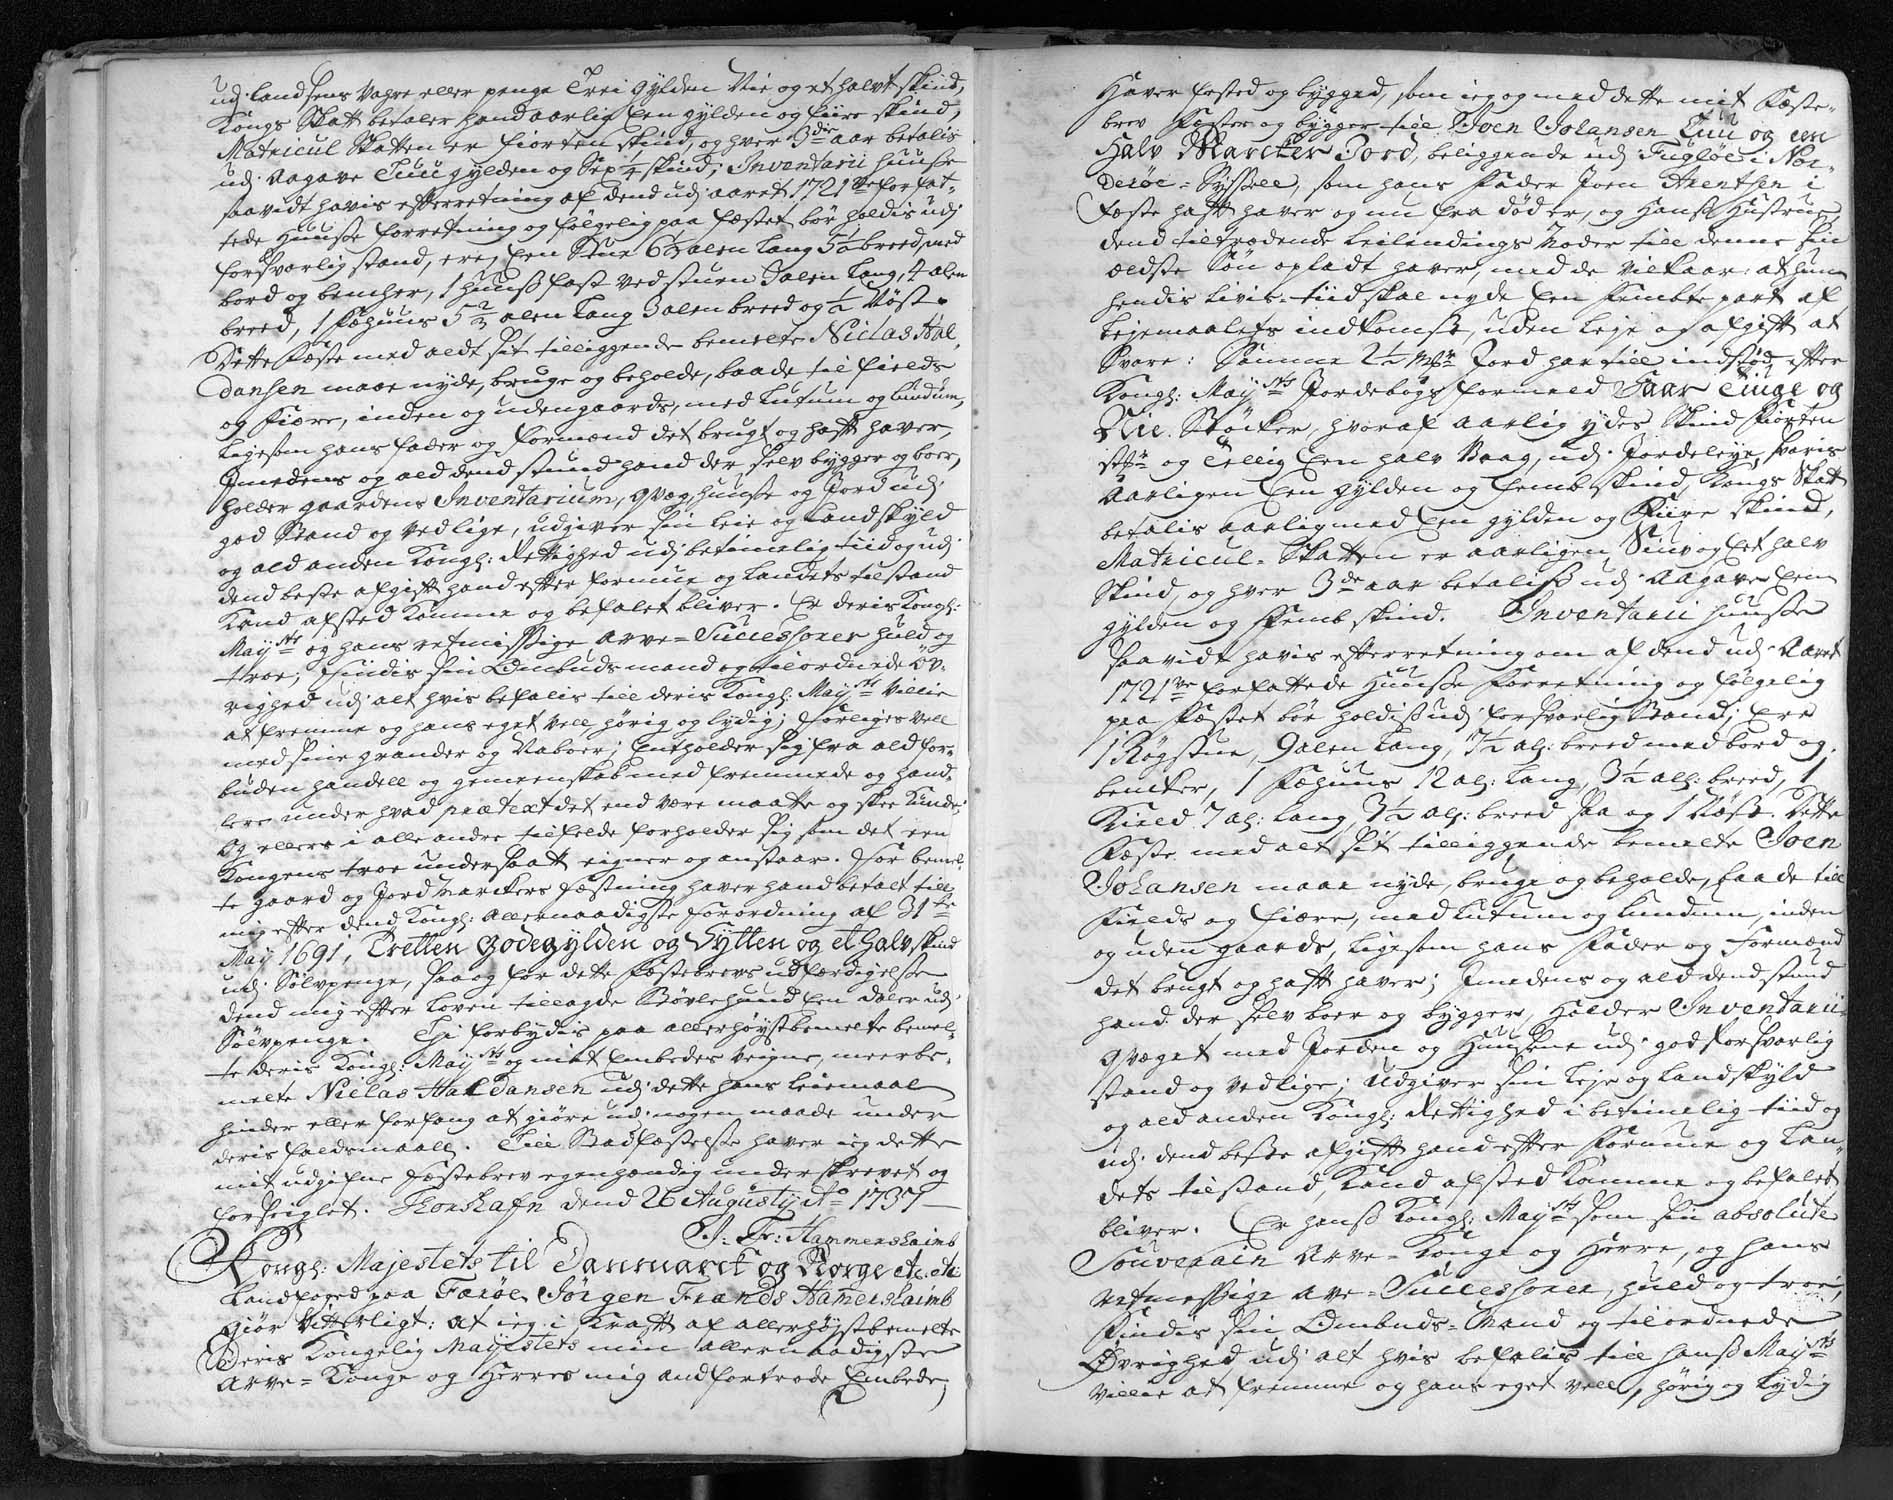 udj landsens vahre eller penge Trei gylden Nie og et halvt skind,
Kongs Skatt betaler hand aarlig Een gylden og fiire skind,
Matricul Skatten er fiorten skind, og hver 3die aar betalis
udj aagave Tuu gylden og Sex skind; Inventarii huuse
saavidt havis efterretning af dend udj aaret 1721ve forfat-
tede Huuse forretning og følgelig paa fæstet bør holdis udj
forsvarlig stand, ere, Een Stue 6½ alen lang 5½ breed, med
bord og bencher, 1 huuss fast ved stuen 3 alen lang, 4 alen
breed, 1 Fæhuus 5⅔ alen lang 3 alen breed og ½ Nøst.
Dette Fæste med aldt sit tilliggende bemelte Niclas Hal-
dansen maae nyde, bruge og beholde, baade til fields
og fiære, inden og udengaards, med lutum og lundum,
ligesom hans fader og formænd det brugt og hafft haver,
Imedens og ald dend stund hand der selv bygger og boer,
holder gaardens Inventarium, qvæg, huuse og Jord udj
god Stand og vedlige, udgiver sin leie og Landskyld
og ald anden Kongl: Rettighed udj betimelig tiid og udj
dend beste afgifft hand efter formue og Landets tilstand
Kand afsted komme og befalet bliver. Er deris Kongl:
Mayts og hans retmessige arve-Successorer huld og
troe; Findis sin Ombudsmand og tilordnede Øv-
righed udj alt hvis befalis till deris Kongl: Mayts villie
at fremme og hans eget vell, hørig og lydig; forliges vell
med sine grander og Naboer; Entholder sig fra ald for-
buden handell og gemeenskab med fremmede og hand-
lere under hvad prætext det end være maatte og skee kunde;
Og ellers i alle andre tilfelde forholder sig som det een
Kongens troe undersaatt eigner og anstaar. For bemel-
te gaard og Jord marckers fæstning haver hand betalt till
mig efter dend Kongl: allernaadigste Forordning af 31te
May 1691, Tretten Godegylden og Sytten og et halv skind
udj Sølvpenge, saa og for dette Fæstebrevs udferdigelse
dend mig efter Loven tillagde Bøvlehund Een daler udj
Sølvpenge. Thi forbydis paa allerhøystbemelte bemel-
te deris Kongl: Mayts og mit Embedes veigne, meerbe-
melte Niclas Haldansen udj dette hans leiemaal
hinder eller forfang at giøre udj nogen maade under
deris faldsmaall. Till Stadfæstelse haver ieg dette
mit udgifne Fæstebrev egenhændig underskrevet og
forseiglet. Thorshafn dend 26 Augustij Ao 1737
J: Fr: Hammershaimb
Kongl: Majestets til Danmarck og Norge etc. etc:
Landfoged paa Færøe Jørgen Frands Hamershaimb
giør vitterligt: at ieg i Krafft af allerhøystbemelte
Deris Kongelig Mayestets min allernaadigste
arve-Konge og Herres mig andfortrode Embede,
Haver fested og bygged, som ieg og med dette mit Fæste-
brev Fæster og bygger till Joen Johansen Tuu og een
Halv Marcker Jord, beliggende udj Fugløe i Nor-
derøe-Syssell, som hans Fader Joen Arentsen i
fæste hafft haver og nu fra død er, og Hanss Hustrue
dend tiltrædende leilendings Moder till denne sin
ældste Søn opladt haver, med de vilkaar: at hun
hendis livis-tiid skal nyde Een Fembte part af
Lejemaalets indkomst, uden leje og afgifft at
svare: Samme 2½ Mkr Jord har till indstød efter
Kongl: Mayts Jordebogs formeld Faar Tiuge og
Nie Støcker, hvoraf aarlig ydes Skind Fiorten
stkr og Tellig Een halv Vaag, udj Jordeleye svaris
aarligen Een gylden og Femb skind, Kongs Skatt
betalis aarlig med Een gylden og Fiire skind,
Matricul-Skatten er aarligen Siuv og Eet halv
Skind, og hver 3de aar betaliss udj aagave Een
gylden og Femb skind. Inventarii huusse
saavidt havis efterretning om af dend udj Aaret
1721ve forfattede Huusse Forretning og følgelig
paa Fæstet bør holdiss udj forsvarlig Stand; Ere
1 Røgstue, 9 alen lang, 7½ al: breed med bord og
bencker, 1 Fæhuus 12 al: lang, 3½ al: breed, 1
Kield 7 al: lang 3½ al: breed saa og 1 Nøst. Dette
Fæste med alt sit tilliggende bemelte Joen
Johansen maae nyde, bruge og beholde, baade till
Fields og fiære, med lutum og lundum, inden
og uden gaards, ligesom hans Fader og Formænd
det brugt og hafft haver; Imedens og ald dend stund
hand der selv boer og bygger, Holder Inventarii
qvæget med Jorden og Huusene udj god Forsvarlig
stand og vedlige; Udgiver sin Leje og Landskyld
og ald anden Kongl: Rettighed i betimelig tiid og
udj dend beste afgifft hand efter Formue og Lan-
dets tilstand, kand afsted komme og befalet
bliver. Er Hanss Kongl: Mayts som sin absolute
Souverain Arve-Konge og Herre, og hans
retmessige Ave-Successorer, huld og troe;
Findis sin Ombuds-Mand og tilordnede
Øvrighed udj alt hvis befalis till Hanss Mayts
villie at fremme og hans eget vell, hørig og lydig